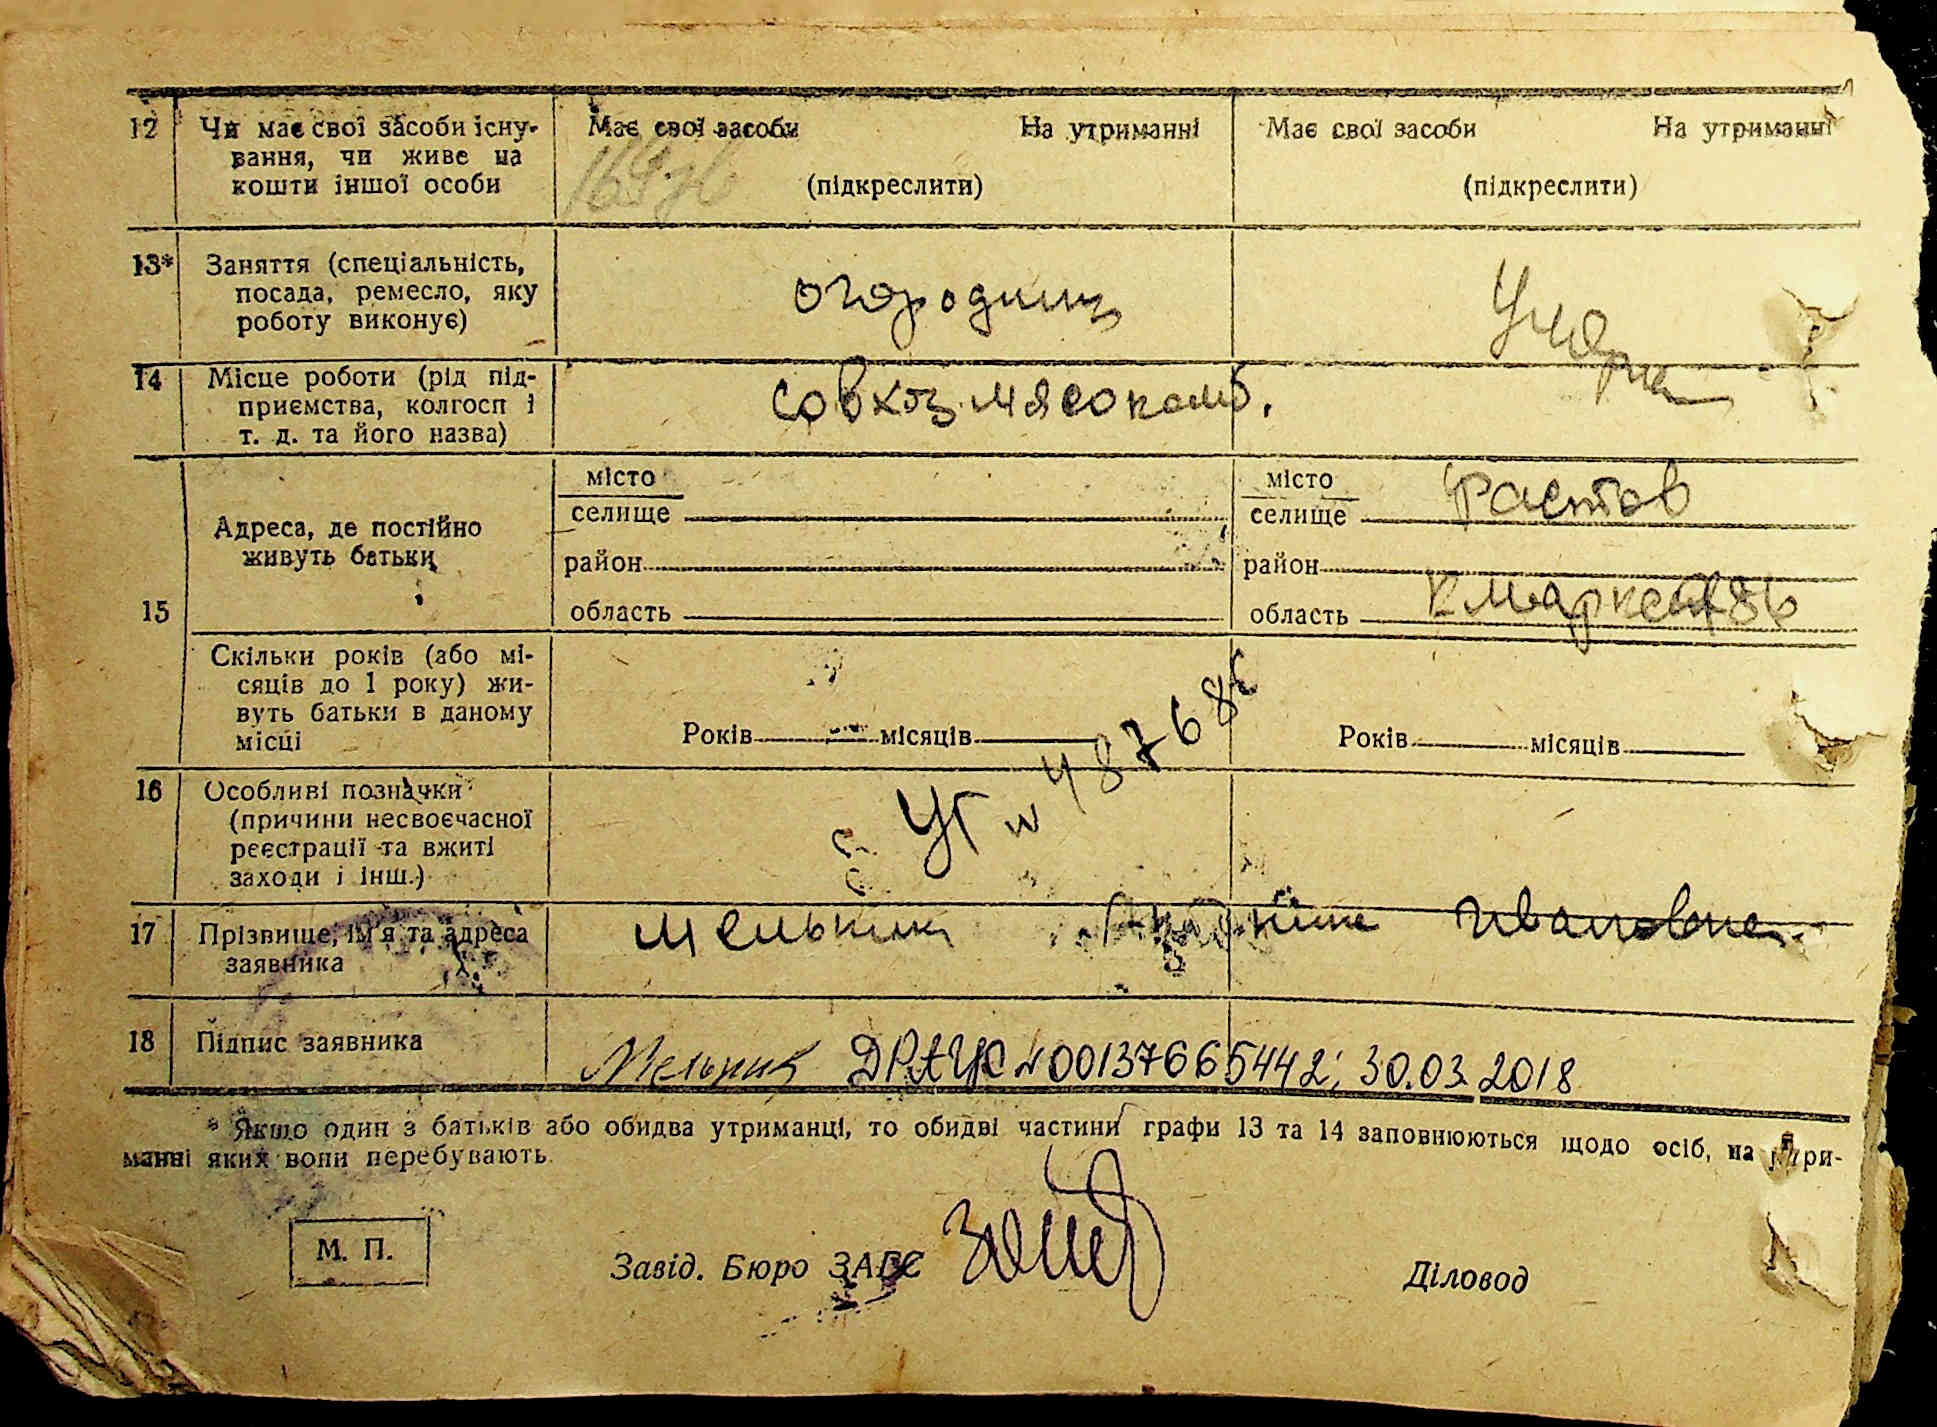 12 Чи має свої засоби існу-
вання, чи живе на
кошти іншої особи
Має свої засоби На утриманні
(підкреслити)
Має свої засоби На утриманні
(підкреслити)
13* Заняття (спеціальність,
посада, ремесло, яку
роботу виконує)
огородниц
14 Місце роботи (рід під-
приємства, колгосп і
т. д. та його назва)
совхоз мясокомб.
15 Адреса, де постійно
живуть батьки
місто
селище
район
область
місто
селище Фастов
район
область К Маркса
Скільки років (або мі-
сяців до 1 року) жи-
вуть батьки в даному
місці
Років місяців
Років місяців
16 Особливі позначки
(причини несвоєчасної
реєстрації та вжиті
заходи і інш.)
УГ N 487682
17 Прізвище, ім'я та адреса
заявника
Мельник Ивановна
18 Підпис заявника
Мельник ДРАЦС N 00137665442; 30.03.2018
* Якщо один з батьків або обидва утриманці, то обидві частини графи 13 та 14 заповнюються щодо осіб, на утри-
манні яких вони перебувають.
М. П.
Завід. Бюро ЗАГС
Діловод